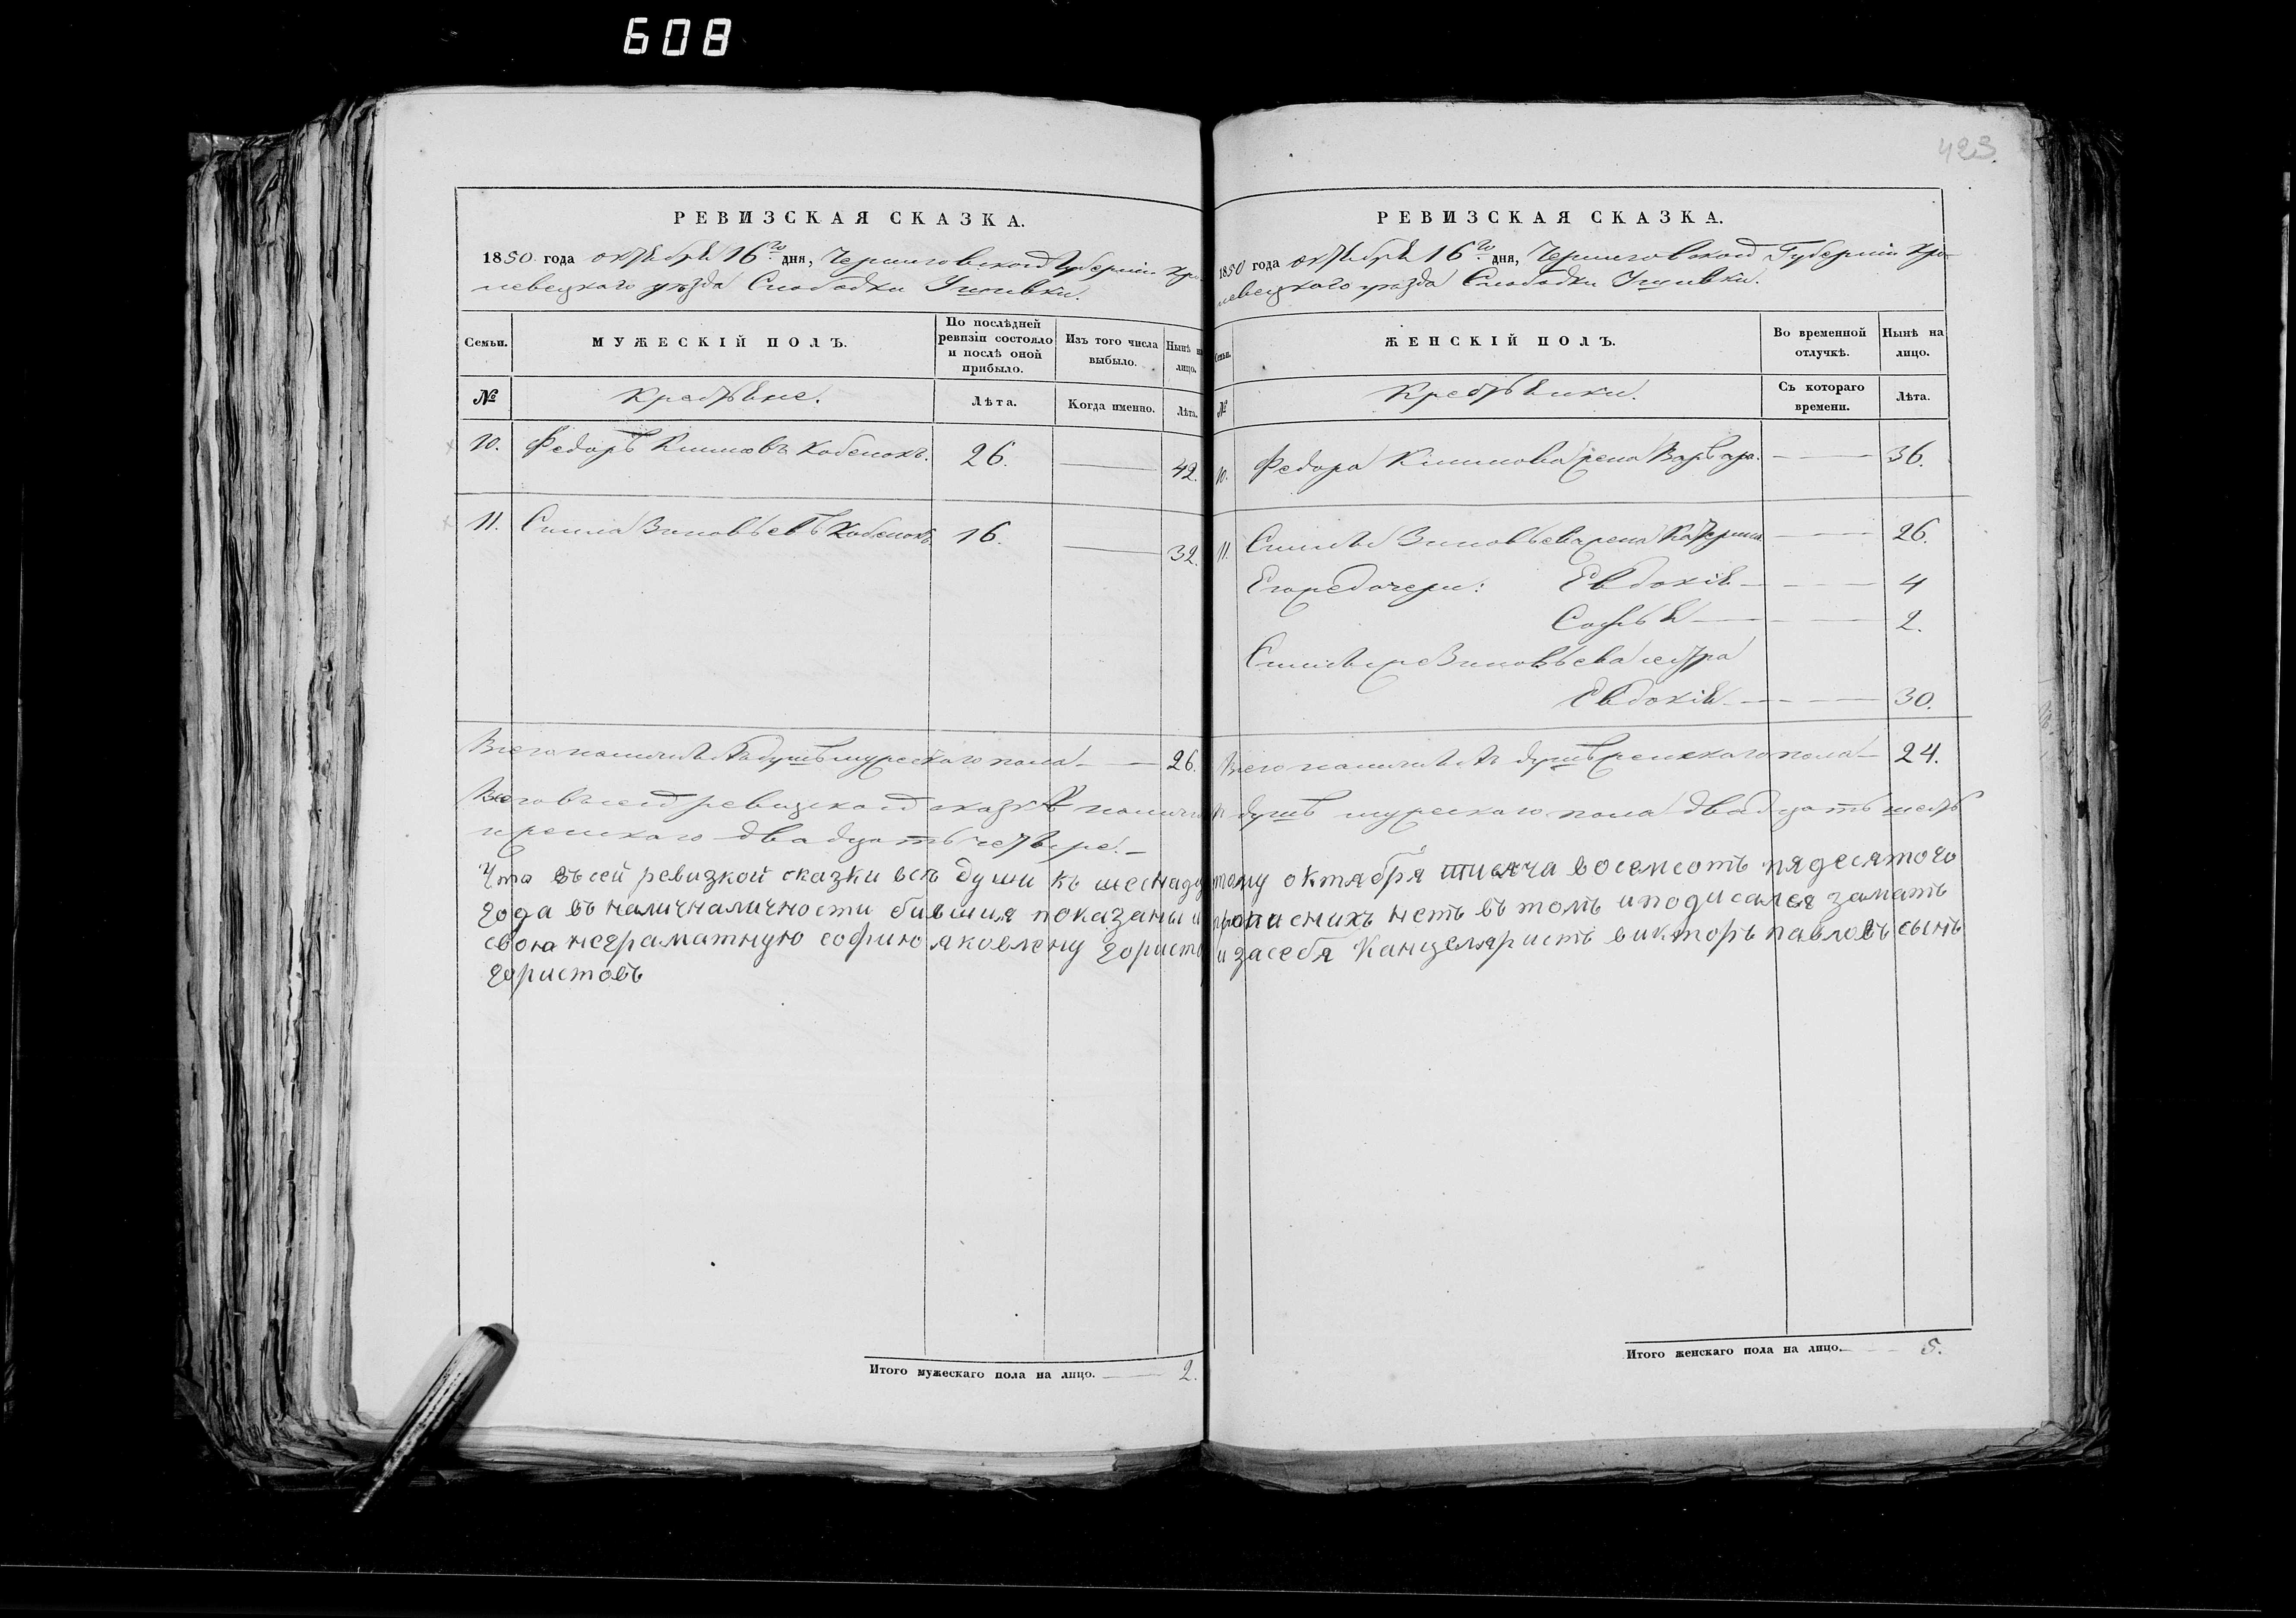 608
423
РЕВИЗСКАЯ СКАЗКА.
1850 года октября 16го дня, Черниговской Губернiи Кро-
левецкого уезда Слободки
Семьи.
МУЖЕСКІЙ ПОЛЪ.
По послѣдней ревизіи состояло и послѣ оной прибыло.
Изъ того числа выбыло.
Нынѣ на лицо.
№
Крестьяне.
Лѣта.
Когда именно.
Лѣта.
10. Федоръ Климовъ Кобенокъ. 26. 42.
11. Зиновьевъ Кобенокъ 16. 32.
Всего наличныхъ душъ мужескаго пола 26.
Итого мужескаго пола на лицо. 2.
РЕВИЗСКАЯ СКАЗКА.
1850 года октября 16го дня, Черниговской Губернiи Кро-
левецкого уезда Слободки
Семьи.
ЖЕНСКІЙ ПОЛЪ.
Во временной отлучкѣ.
Нынѣ на лицо.
№
Крестьянки.
Съ котораго времени.
Лѣта.
10. Федора Климова жена Варвара. 36.
11. Зиновьева жена Катерина 26.
Егоже дочери: Евдокія 4
Софья 2.
Зиновьева сестра
Евдокія 30.
Всего наличныхъ душъ женскаго пола 24.
Всего въ сей ревизской сказкѣ наличныхъ душъ мужескаго пола двадцать шесть
и женскаго двадцать четыре.
Что въ сей ревизкой сказки всѣ души къ шеснадцтому октября тисяча восемсотъ пядесятого
года въ наличналичности бившия показаны и прописнихъ нетъ въ томъ иподисался замать
свою неграматную софию яковлену гористо и засебя Канцеляристъ викторъ павловъ сынъ
гористовъ
Итого женскаго пола на лицо. 5.